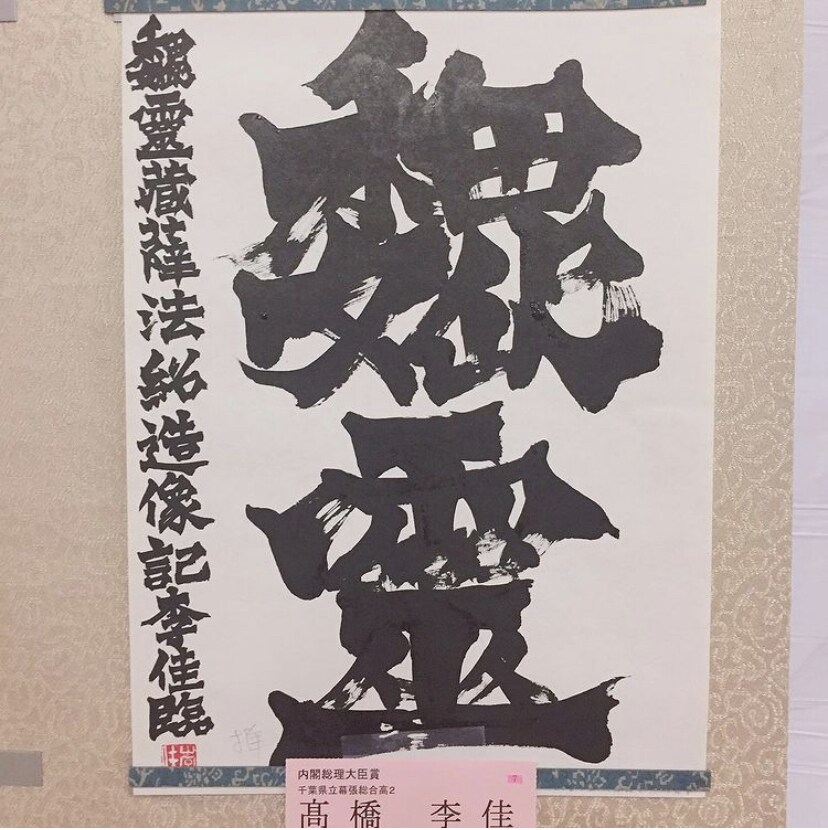 魏靈
魏靈藏薛法紹造像記李佳臨
内閣総理大臣賞
千葉県立幕張総合高2
髙橋 李佳